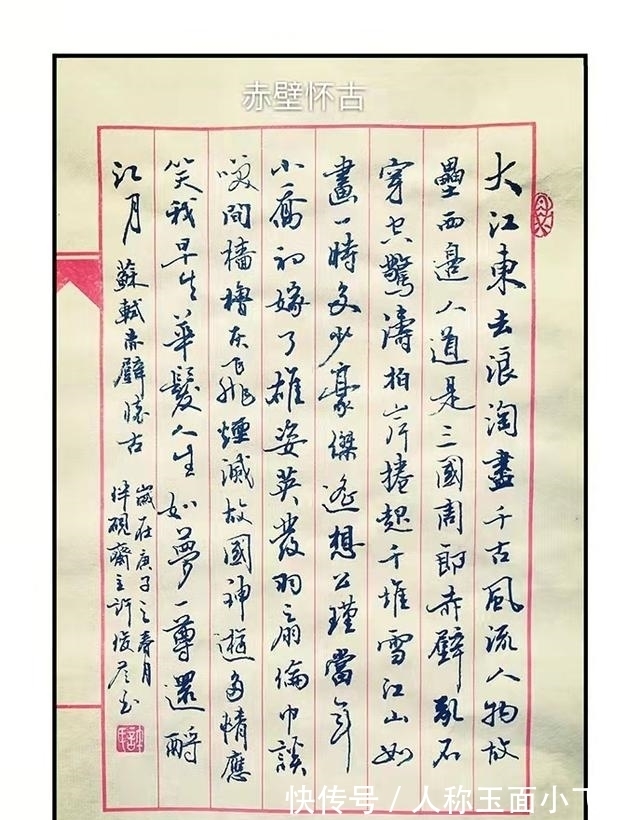 赤壁怀古
大江東去浪淘盡千古風流人物故
壘西邊人道是三國周郎赤壁亂石
穿空驚濤拍岸捲起千堆雪江山如
畫一時多少豪傑遙想公瑾當年
小喬初嫁了雄姿英發羽扇倫巾談
咲間檣櫓灰飛煙滅故國神遊多情應
笑我早生華髮人生如夢一尊還酹
江月 蘇軾赤壁懷古
歲在庚子之春月
硯齋主許俊彥
快传号 / 人称玉面小